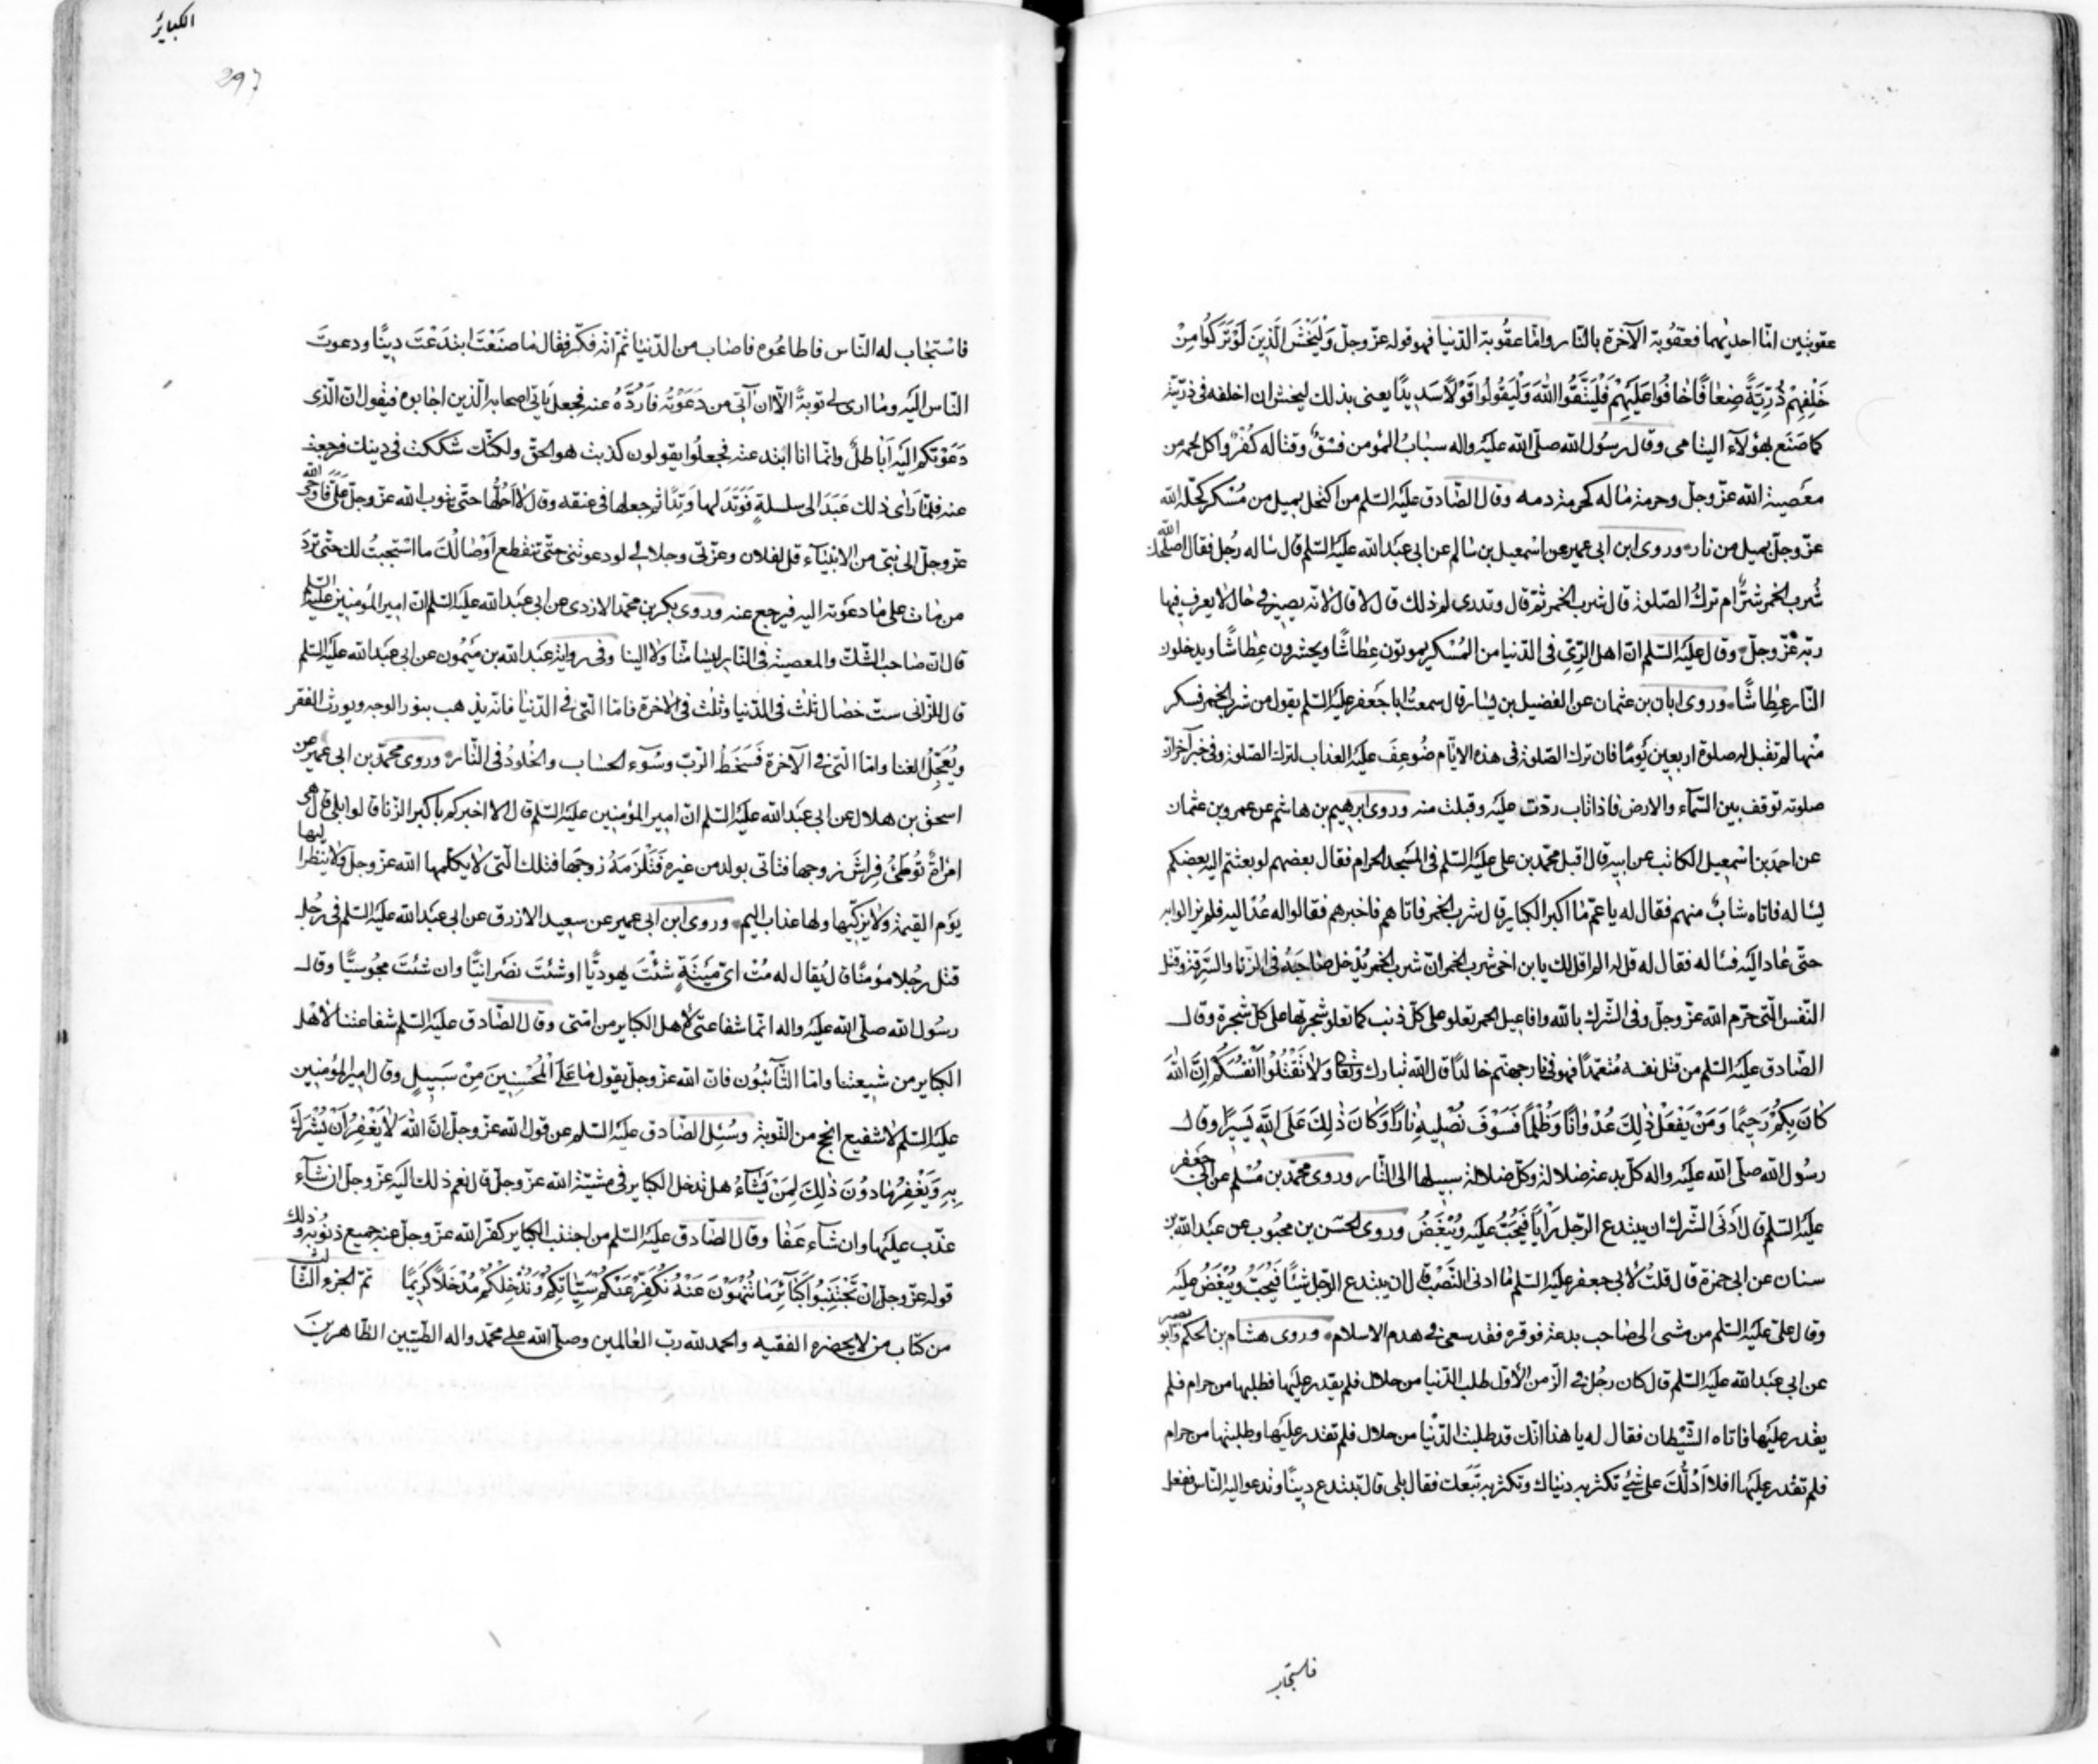 عقوبتين امّا احديهما فعقوبة الآخرة بالنّار وامّا عقوبة الدّنيا فهو قوله عزّ وجلّ وَلْيَخْشَ الَّذِينَ لَوْ تَرَكُوا مِنْ
خَلْفِهِمْ ذُرِّيَّةً ضِعَافًا خَافُوا عَلَيْهِمْ فَلْيَتَّقُوا اللهَ وَلْيَقُولُوا قَوْلًا سَدِيدًا يعنى بذلك ليخش ان اخلفه فى ذرّيّته
كما صَنَع بهؤلآء اليتامى وقال رسُول الله صلّى الله عليه واله سبابُ المؤمن فسْقٌ وقتاله كُفْرٌ واكل لحمه من
معصية الله عزّ وجلّ وحرمة ماله كحرمة دمه وقال الصّادق عليه السّلم من اكتحل بميل من مُسْكر كحّله الله
عزّ وجلّ بميل من نار وروى ابن ابى عمير عن اسمعيل بن سالم عن ابى عبد الله عليه السّلم قال ساله رجُل فقال اصلحك الله
شُرب الخمر شرٌّ ام تركُ الصّلوة قال شرب الخمر ثمّ قال وتدرى لم ذلك قال لا قال لانّه يصير فى حال لا يعرف فيها
ربّه عزّ وجلّ وقال عليه السّلم انّ اهل الرّىّ فى الدّنيا من المُسْكر يموتون عِطاشًا ويحشرون عِطاشًا ويدخلون
النّار عِطاشًا وروى ابان بن عثمان عن الفضيل بن يسار قال سمعتُ ابا جعفر عليه السّلم يقول من شرب الخمر فسكر
منها لم تقبل له صلوة اربعين يَومًا فان ترك الصّلوة فى هذه الايّام ضُوعِفَ عليه العذاب لترك الصّلوة وفى خبر آخر انّ
صلوته توقف بين السّمآء والارض فاذا تاب ردّت عليه وقبلت منه وروى ابرهيم بن هاشم عن عمرو بن عثمان
عن احمد بن اسمعيل الكاتب عن ابيه قال اقبل محمّد بن على عليه السّلم فى المسجد الحرام فقال بعضهم لو بعثتم اليه بعضكم
يساله فاتاه شابٌ منهم فقال له يا عمّ ما اكبر الكباير قال شرب الخمر فاتاهم فاخبرهم فقالوا له عُدْ اليه فلم يزالوا به
حتّى عاد اليه فساله فقال له قل له الم اقل لك يابن اخى شرب الخمر انّ شرب الخمر يُدْخل صاحبَهُ فى الزّنا والسّرقة وقتل
النّفس الّتى حرّم الله عزّ وجلّ وفى الشّرك بالله وافاعيل الخمر تعلو على كلّ ذنب كما تعلو شجرتها على كلّ شجرة وقال
الصّادق عليه السّلم من قتل نفسه مُتعمّدًا فهو فى نار جهنّم خالدًا قال الله تبارك وتعالى وَلَا تَقْتُلُوا أَنْفُسَكُمْ إِنَّ اللهَ
كَانَ بِكُمْ رَحِيمًا وَمَنْ يَفْعَلْ ذٰلِكَ عُدْوَانًا وَظُلْمًا فَسَوْفَ نُصْلِيهِ نَارًا وَكَانَ ذٰلِكَ عَلَى اللهِ يَسِيرًا وقال
رسُول الله صلّى الله عليه واله كلّ بدعة ضلالة وكلّ ضلالة سبيلها الى النّار وروى محمّد بن مُسْلم عن ابى جعفر
عليه السّلم قال أدنَى الشّرك ان يبتدع الرّجل رَأيًا فيُحَبُّ عليه ويُبْغَضُ وروى الحسَن بن محبوب عن عبد الله بن
سنان عن ابى حمزة قال قلتُ لابى جعفر عليه السّلم ما ادنى النّصْب قال ان يبتدع الرّجل شيئًا فيُحبّ ويُبْغَضُ عليه
وقال علىّ عليه السّلم من مشى الى صاحب بدعة فوقّره فقد سعى فى هدم الاسلام وروى هشام بن الحكم وابو بصير
عن ابى عبد الله عليه السّلم قال كان رجُل فى الزّمن الأوّل طلب الدّنيا من حلال فلم يقدر عليها فطلبها من حرام فلم
يقدر عليها فاتاه الشّيْطان فقال له يا هذا انّك قد طلبت الدّنْيا من حلال فلم تقدر عليها وطلبتها من حرام
فلم تقدر عليها افلا اَدُلُّكَ على شئ تكثر به دنياك وتكثر به تَبَعك فقال بلى قال تبتدع دِينًا وتدعو اليه النّاس ففعل
فاستجاب
الكباير
297
فاسْتجاب له النّاس فاطاعُوه فاصاب من الدّنيا ثمّ انّه فكّر فقال ما صنَعْتَ ابتدَعْتَ دِينًا ودعوتَ
النّاس اليه وما ارى لى توبةً الّا ان آتى من دَعَوْتُه فَاَرُدَّهُ عنه فجعل ياتى اصحابه الّذين اجابوه فيقول انّ الّذى
دَعَوْتكم اليه بَاطلٌ وانّما انا ابْتدعته فجعلُوا يقولون كذبت هو الحقّ ولكنّك شككت فى دينك فرجعت
عنه فلمّا رأى ذلك عَمَدَ الى سلسلةٍ فَوَتَدَ لها وَتِدًا ثم جعلها فى عنقه وقال لا اَحُلُّها حتّى يتوب الله عزّ وجلّ عَلَىَّ فاوحى الله
عزّ وجلّ الى نبىّ من الانبيآء قل لفلان وعزّتى وجلالى لو دعوتنى حتّى تنقطع اَوْصَالُكَ ما اسْتجبتُ لك حتّى تردّ
من مات على ما دعَوْته اليه فيرجع عنه وروى بكر بن محمّد الازدى عن ابى عبد الله عليه السّلم انّ امير المؤمنين عليه السّلم
قال انّ صاحب الشّكّ والمعصية فى النّار ليسَا منّا ولا الينا وفى رواية عبد الله بن ميمُون عن ابى عبد الله عليه السّلم
قال للزّانى ستّ خصال ثلث فى الدّنيا وثلث فى الاخرة فامّا الّتى فى الدّنيا فانّه يذهب بنور الوجه ويورث الفقر
ويُعَجِّلُ الفنا وامّا الّتى فى الآخرة فَسَخَطُ الرّبّ وسُوٓء الحساب والخُلودُ فى النّار وروى محمّد بن ابى عمير عن
اسحق بن هلال عن ابى عبد الله عليه السّلم انّ امير المؤمنين عليه السّلم قال الا اخبركم باكبر الزّنا قالوا بلى قال هى
امْرَاَةٌ تُوطئُ فِراشَ زوجها فتاتى بولد من غيره فَتُلْزِمَهُ زوجَها فتلك الّتى لا يكلّمها الله عزّ وجلّ ولا ينظر اليها
يوَم القيمة ولا يزكّيها ولها عذاب اليم وروى ابن ابى عمير عن سعيد الازرق عن ابى عبد الله عليه السّلم فى رجُل
قتل رجُلا مؤمنًا قال يُقال له مُتْ اىّ مِيتَةٍ شئْتَ يهوديًّا او شئتَ نصْرانيًّا وان شئتَ مجُوسيًّا وقال
رسُول الله صلّى الله عليه واله انّما شفاعتى لأهل الكباير من امّتى وقال الصّادق عليه السّلم شفاعتنا لأهْل
الكباير من شيعتنا وامّا التّآئبُون فانّ الله عزّ وجلّ يقول مَا عَلَى الْمُحْسِنِينَ مِنْ سَبِيلٍ وقال امير المؤمنين
عليه السّلم لا شفيع انجح من التّوبة وسُئِل الصّادق عليه السّلم عن قول الله عزّ وجلّ اِنَّ اللهَ لَا يَغْفِرُ اَنْ يُشْرَكَ
بِهِ وَيَغْفِرُ مَا دُونَ ذٰلِكَ لِمَنْ يَشَآءُ هل تدخل الكباير فى مشيّة الله عزّ وجلّ قال نعم ذلك اليه عزّ وجلّ ان شآء
عذّب عليها وان شآء عَفَا وقال الصّادق عليه السّلم من اجتنب الكباير كفّر الله عزّ وجلّ عنه جميع ذنوبه وذلك
قوله عزّ وجلّ اِنْ تَجْتَنِبُوا كَبَآئِرَ مَا تُنْهَوْنَ عَنْهُ نُكَفِّرْ عَنْكُمْ سَيِّئَاتِكُمْ وَنُدْخِلْكُمْ مُدْخَلًا كَرِيمًا تمّ الجزء الثّالث
من كتاب من لا يحضره الفقيه والحمد لله ربّ العالمين وصلّى الله على محمّد واله الطّيّبين الطّاهرين